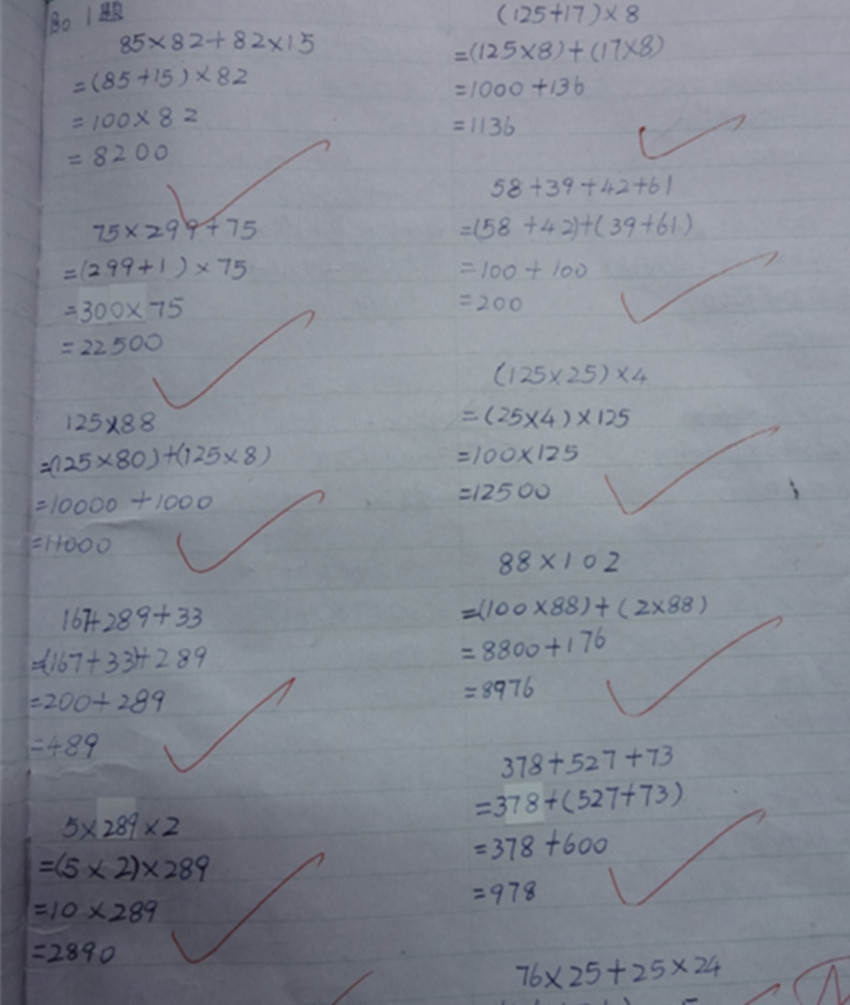 80 1题
85×82+82×15
=(85+15)×82
=100×82
=8200
75×299+75
=(299+1)×75
=300×75
=22500
125×88
=(125×80)+(125×8)
=10000+1000
=11000
167+289+33
=(167+33)+289
=200+289
=489
5×289×2
=(5×2)×289
=10×289
=2890
(125+17)×8
=(125×8)+(17×8)
=1000+136
=1136
58+39+42+61
=(58+42)+(39+61)
=100+100
=200
(125×25)×4
=(25×4)×125
=100×125
=12500
88×102
=(100×88)+(2×88)
=8800+176
=8976
378+527+73
=378+(527+73)
=378+600
=978
76×25+25×24